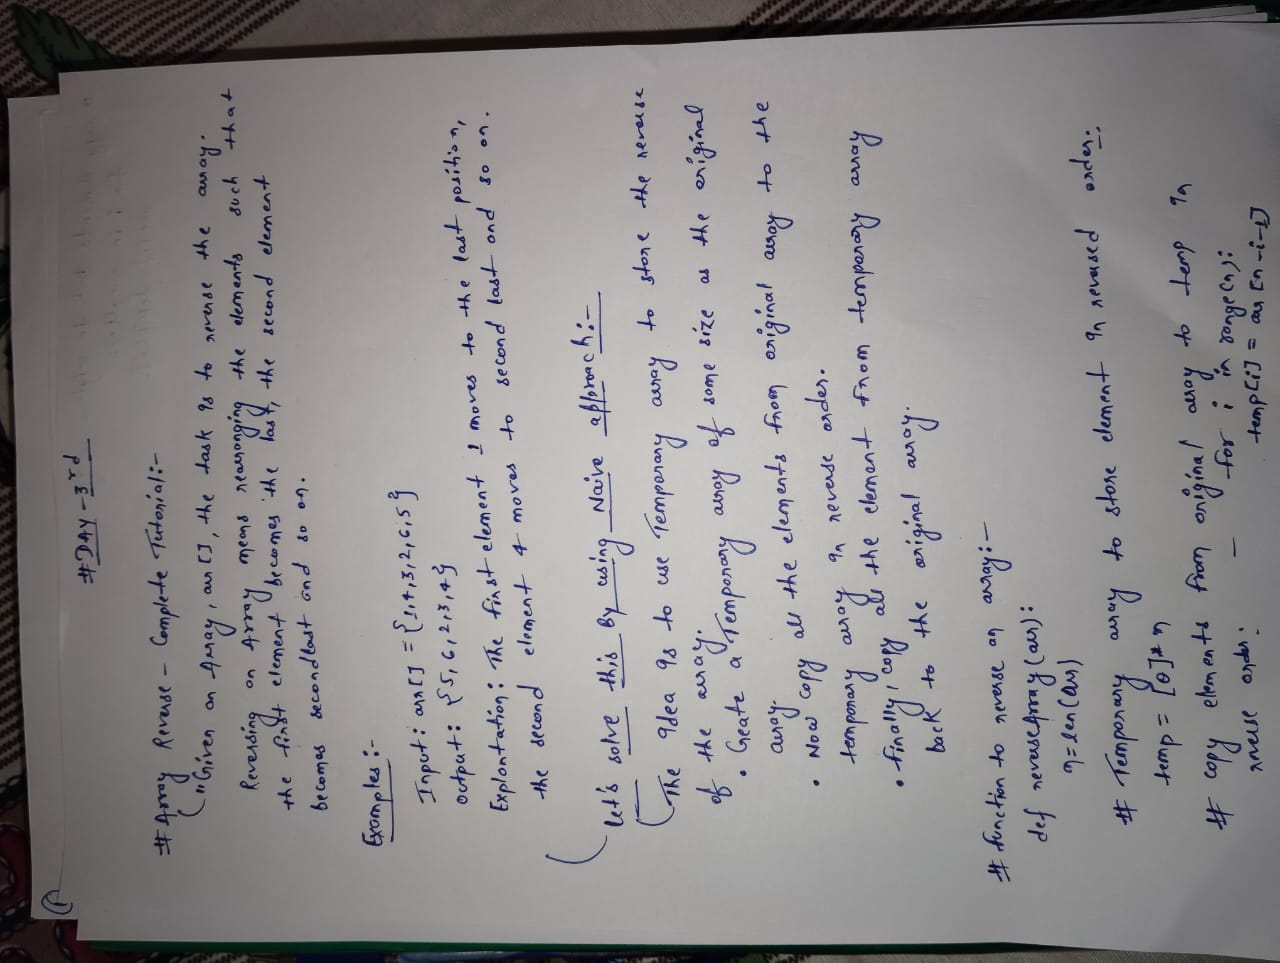 #DAY-3rd
# Array Reverse - Complete Tutorial:-
("Given an Array, arr[], the task is to reverse the array.
Reversing an Array means rearranging the elements such that
the first element becomes the last, the second element
becomes secondlast and so on.
Examples:-
Input: arr[] = {1,4,3,2,6,5}
output: {5,6,2,3,4}
Explantation: The first element 1 moves to the last position,
the second element 4 moves to second last and so on.
Let's solve this By using Naive approach:-
(The idea is to use Temporary array to store the reverse
of the array.
• Create a Temporary array of same size as the original
array.
• Now copy all the elements from original array to the
temporary array in reverse order.
• finally, copy all the element from temporary array
back to the original array.
# function to reverse an array:-
def reverseArray(arr):
n=len(arr)
# Temporary array to store element in reversed order:
temp = [0]*n
# copy elements from original array to temp in
reverse order. - for i in range(n):
temp[i] = arr[n-i-1]